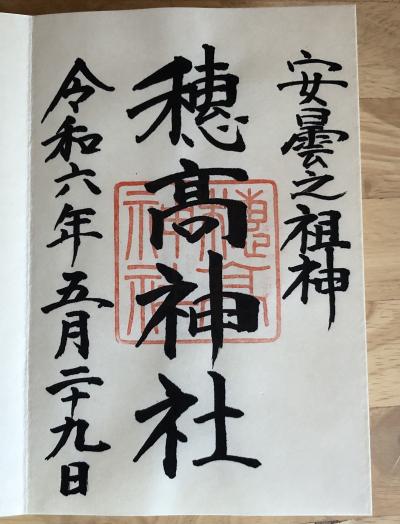 安曇之祖神
穂髙神社
令和六年五月二十九日
穂高
神社